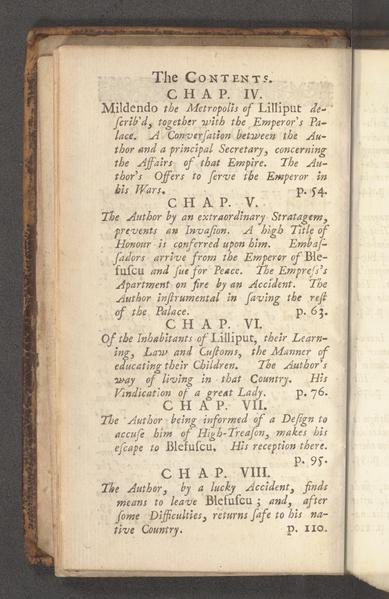 The CONTENTS.
CHAP. IV.
Mildendo the Metropolis of Lilliput de-
ſcrib'd, together with the Emperor's Pa-
lace. A Converſation between the Au-
thor and a principal Secretary, concerning
the Affairs of that Empire. The Au-
thor's Offers to ſerve the Emperor in
his Wars. p. 54.
CHAP. V.
The Author by an extraordinary Stratagem,
prevents an Invaſion. A high Title of
Honour is conferred upon him. Embaſ-
ſadors arrive from the Emperor of Ble-
fuſcu and ſue for Peace. The Empreſs's
Apartment on fire by an Accident. The
Author inſtrumental in ſaving the reſt
of the Palace. p. 63.
CHAP. VI.
Of the Inhabitants of Lilliput, their Learn-
ing, Law and Cuſtoms, the Manner of
educating their Children. The Author's
way of living in that Country. His
Vindication of a great Lady. p. 76.
CHAP. VII.
The Author being informed of a Deſign to
accuſe him of High-Treaſon, makes his
eſcape to Blefuſcu. His reception there.
p. 95.
CHAP. VIII.
The Author, by a lucky Accident, finds
means to leave Blefuſcu; and, after
ſome Difficulties, returns ſafe to his na-
tive Country. p. 110.